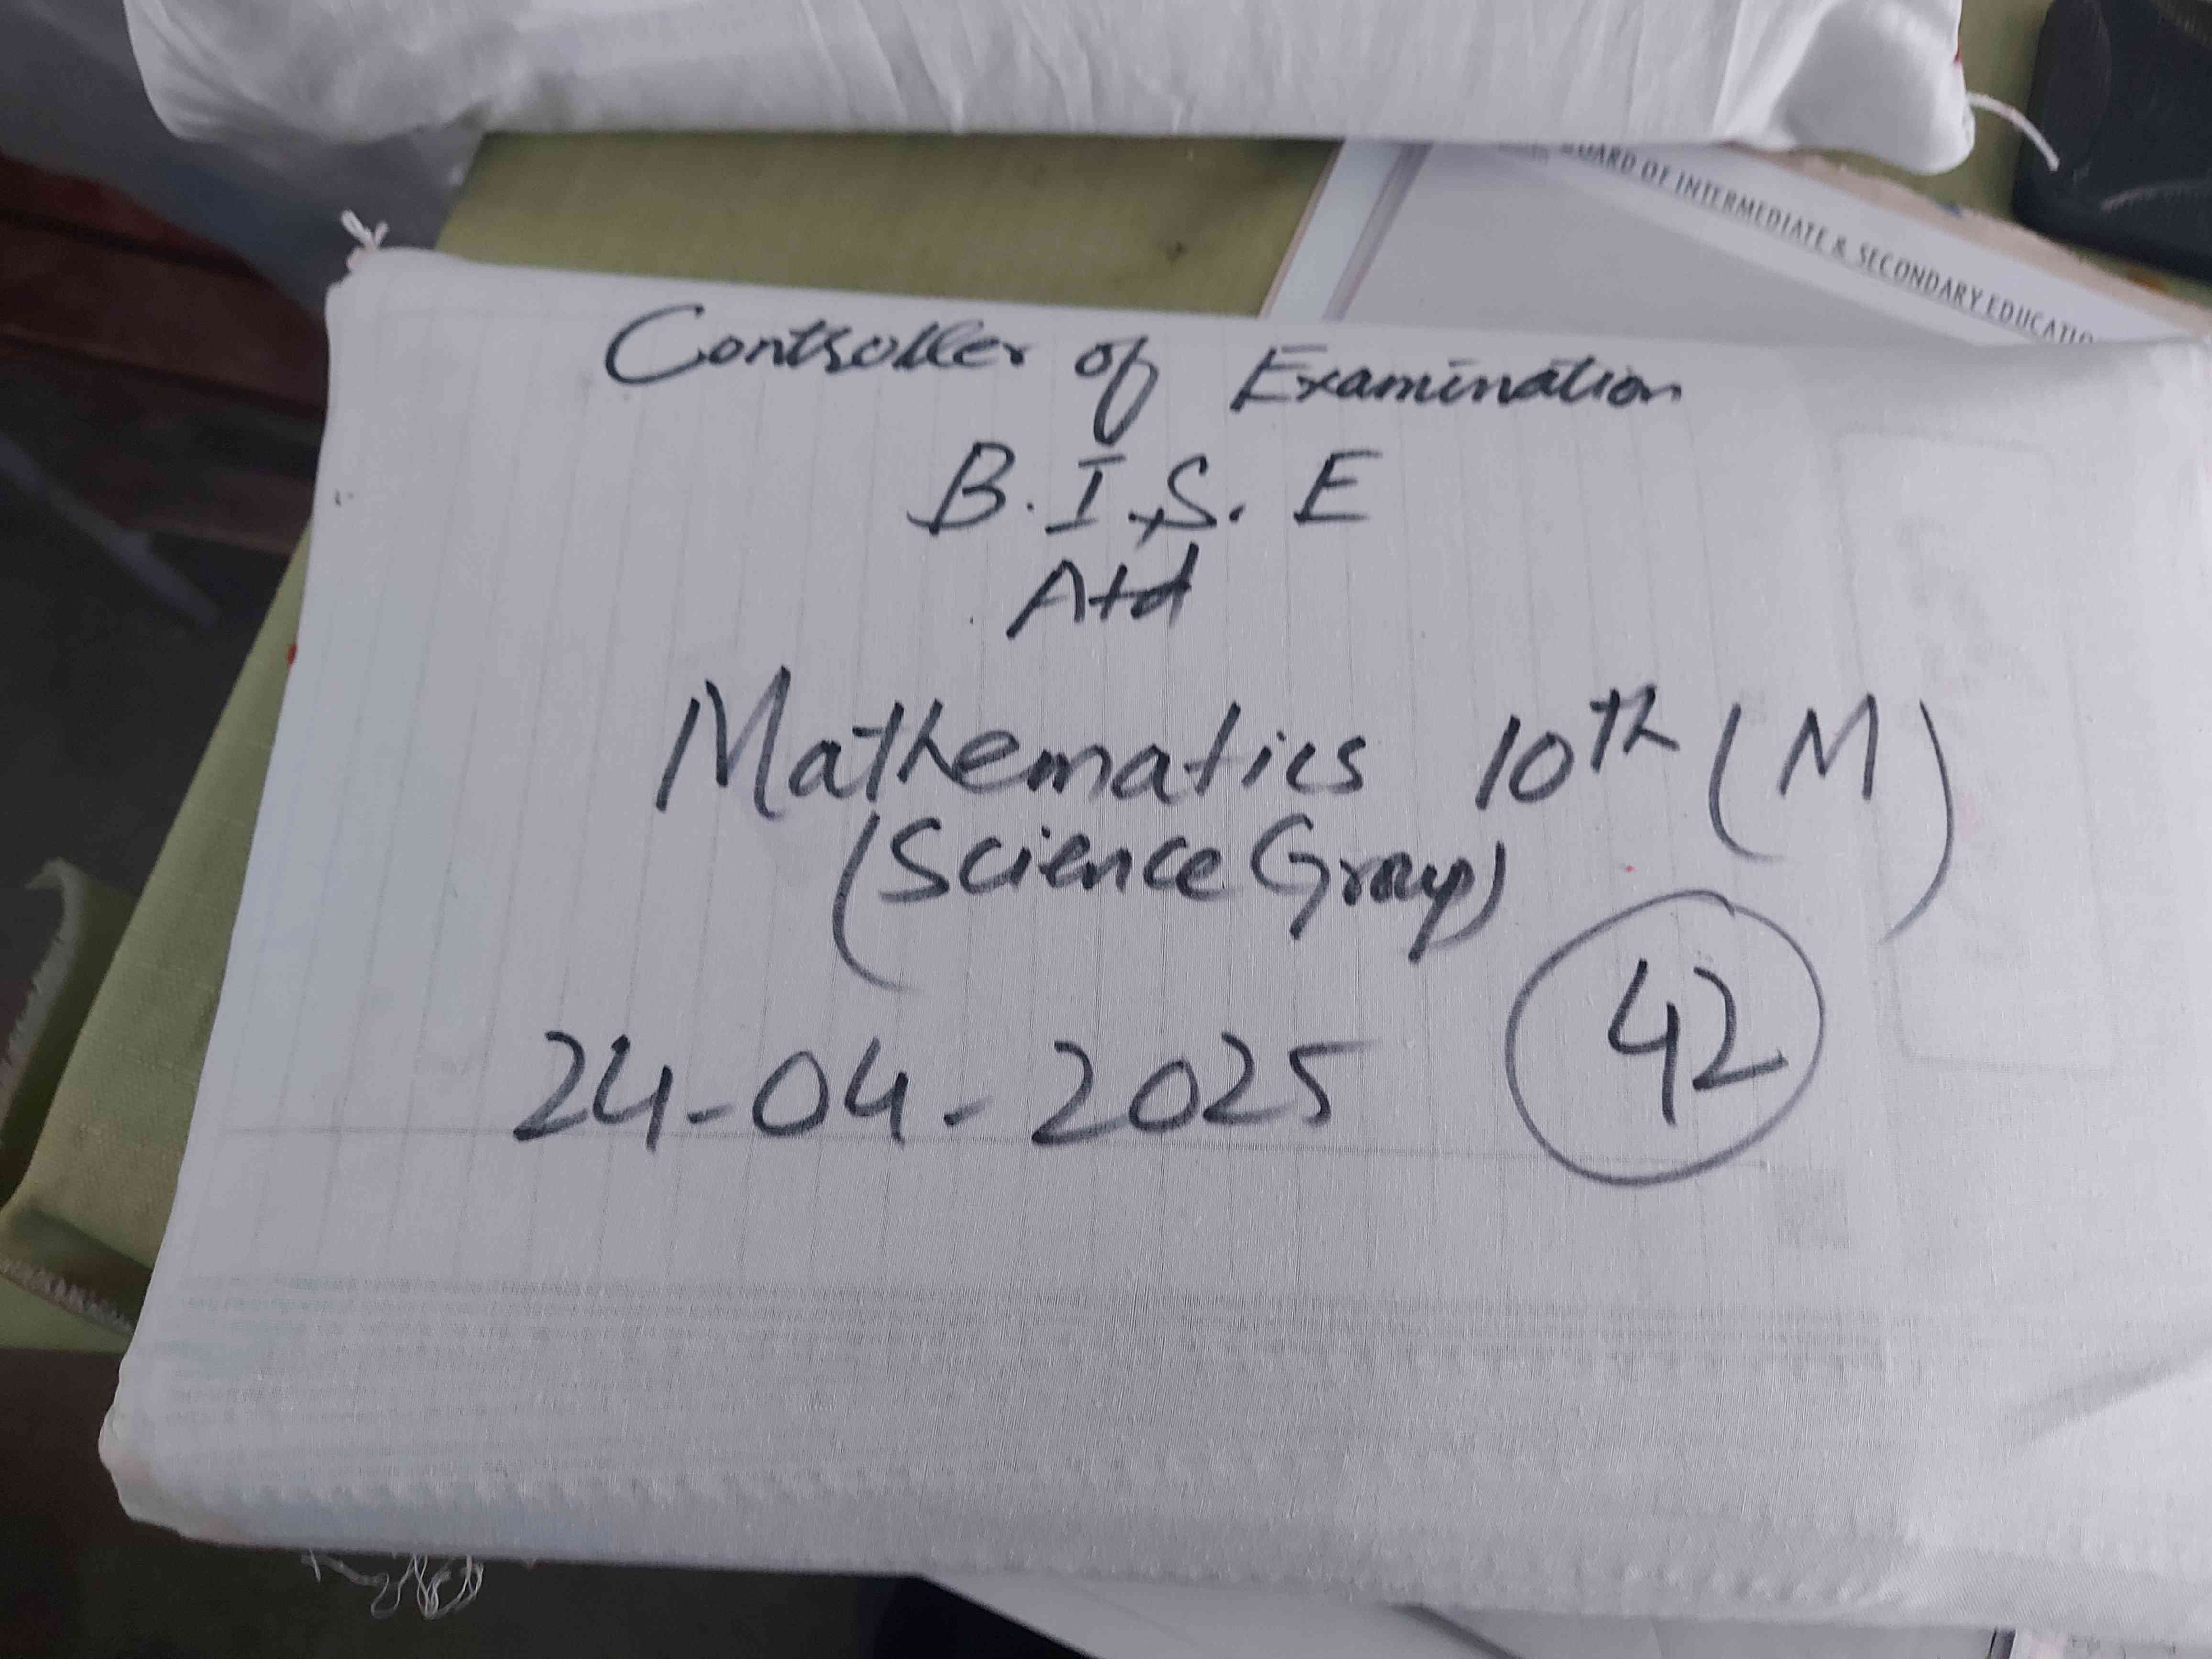 BOARD OF INTERMEDIATE & SECONDARY EDUCATIO
Controller of Examination
B.I.S.E
Atd
Mathematics 10th (M)
(Science Group)
42
24-04-2025